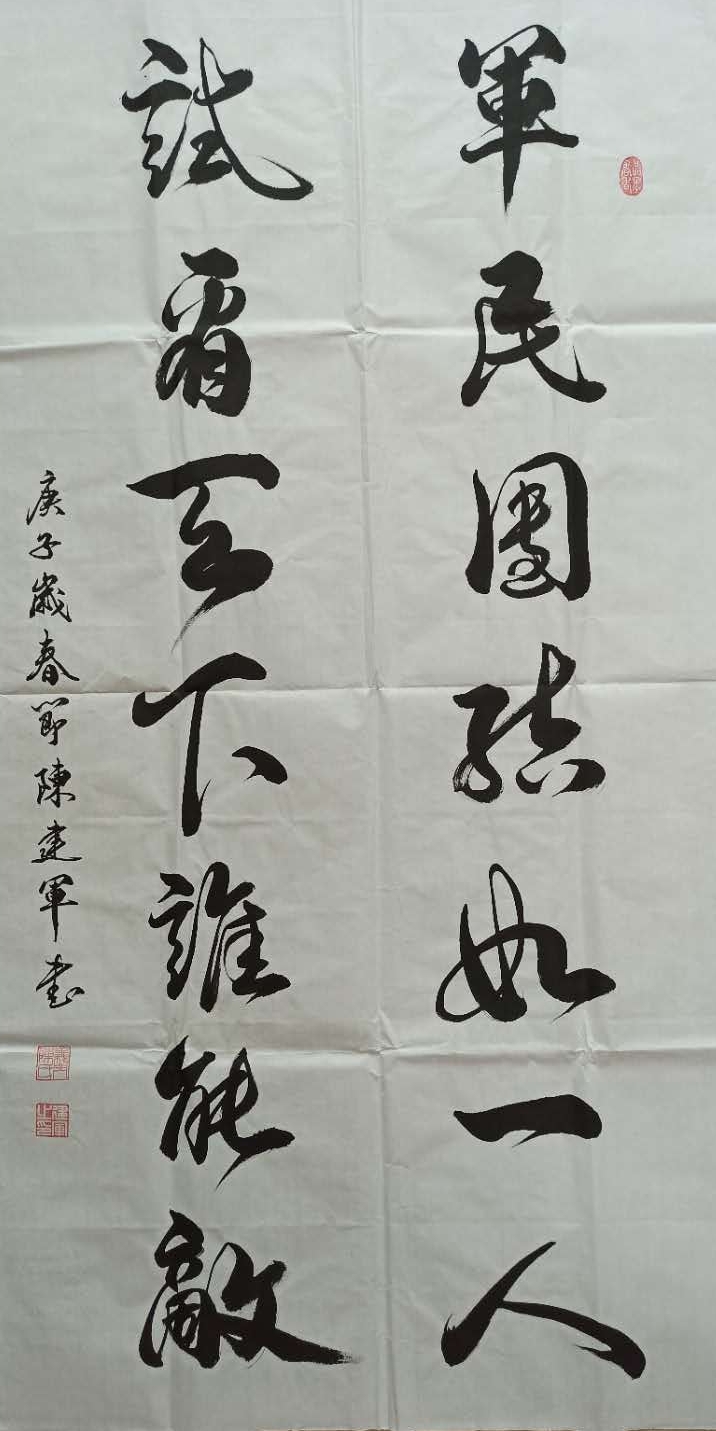 軍民團結如一人
試看天下誰能敵
庚子歲春節陳建軍書